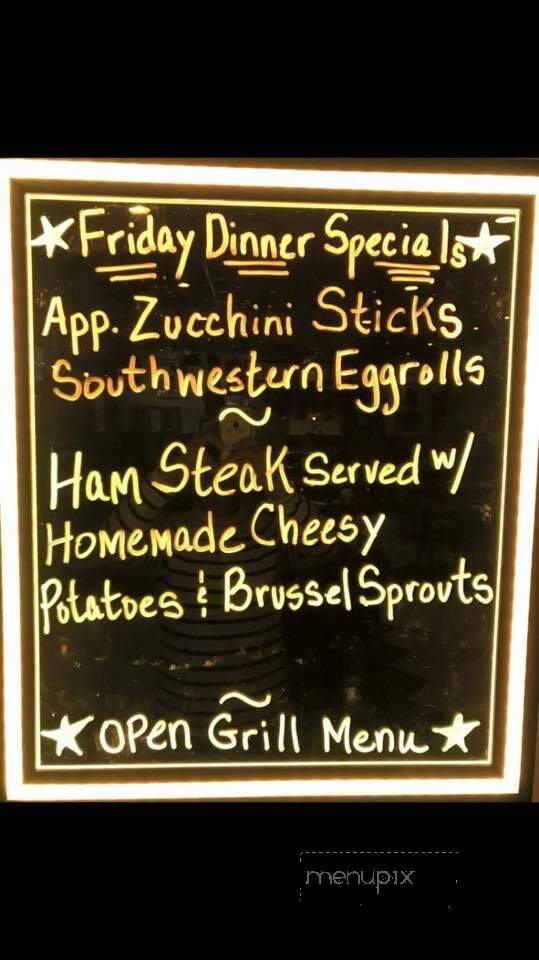 Friday Dinner Specials
App. Zucchini Sticks
Southwestern Eggrolls
~
Ham Steak Served w/
Homemade Cheesy
Potatoes & Brussel Sprouts
~
Open Grill Menu
menupix